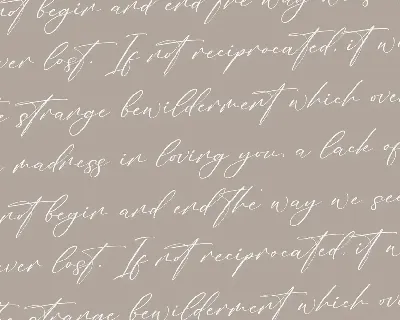 not begin and end the way we s
ver lost. If not reciprocated, it w
strange bewilderment which over
madness in loving you, a lack of
not begin and end the way we see
ever lost. If not reciprocated, it w
strange bewilderment which over